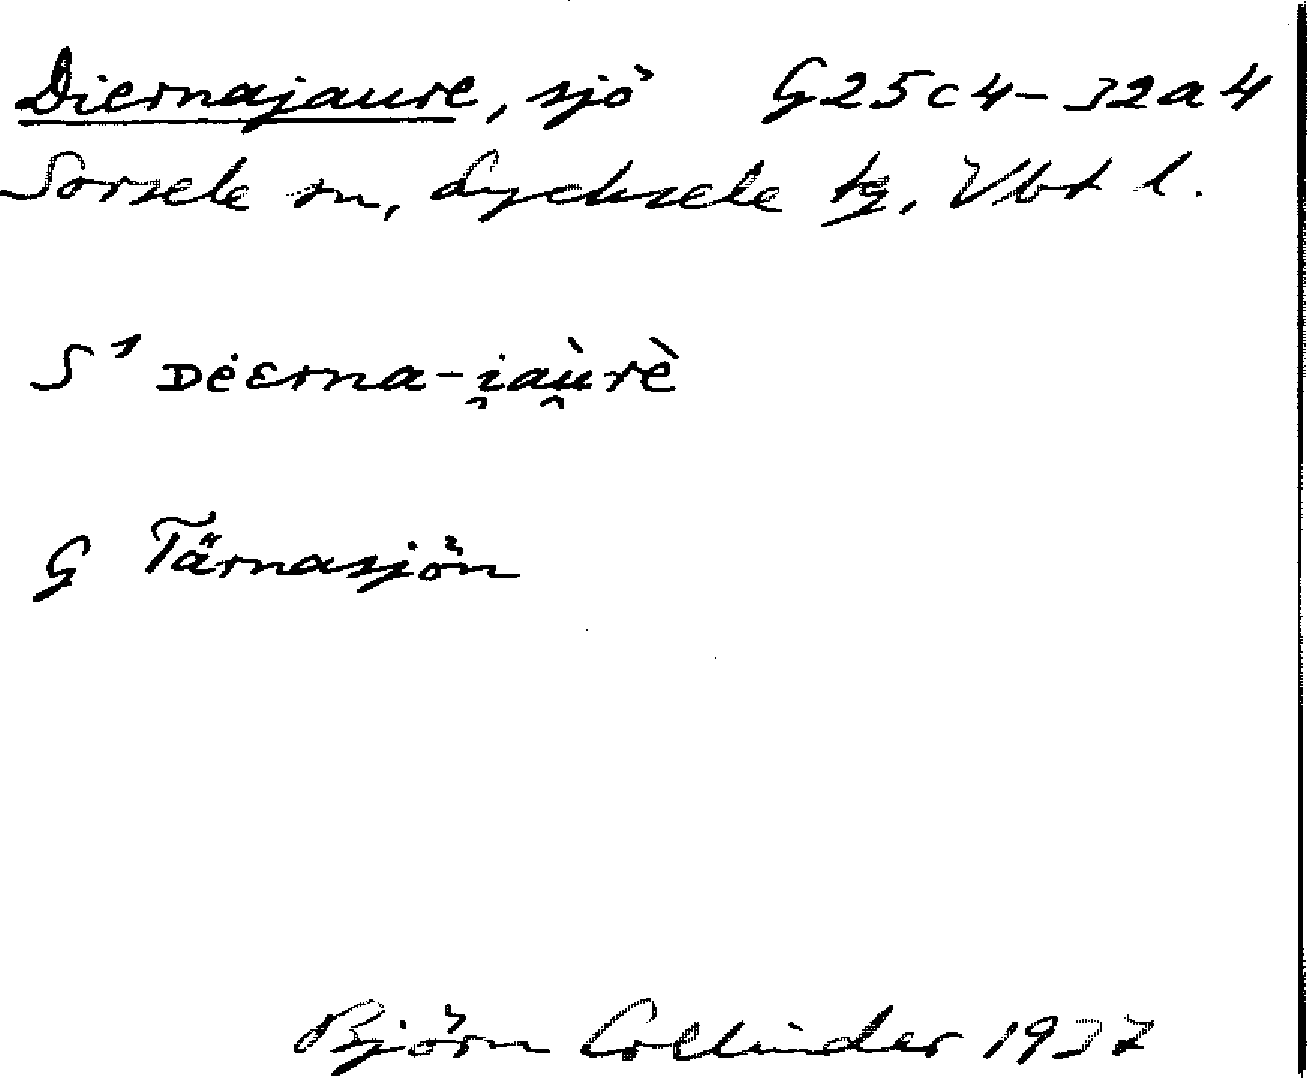 Diernajaure, sjö G25c4-32a4
Sorsele sn, Lycksele tg, Vbt l.
S¹ ᴅėɛrna-i̯aù̯rè
G Tärnasjön
Björn Collinder 1937